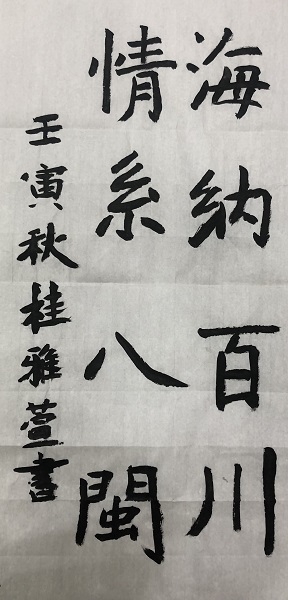 海纳百川
情系八閩
壬寅秋桂雅萱書